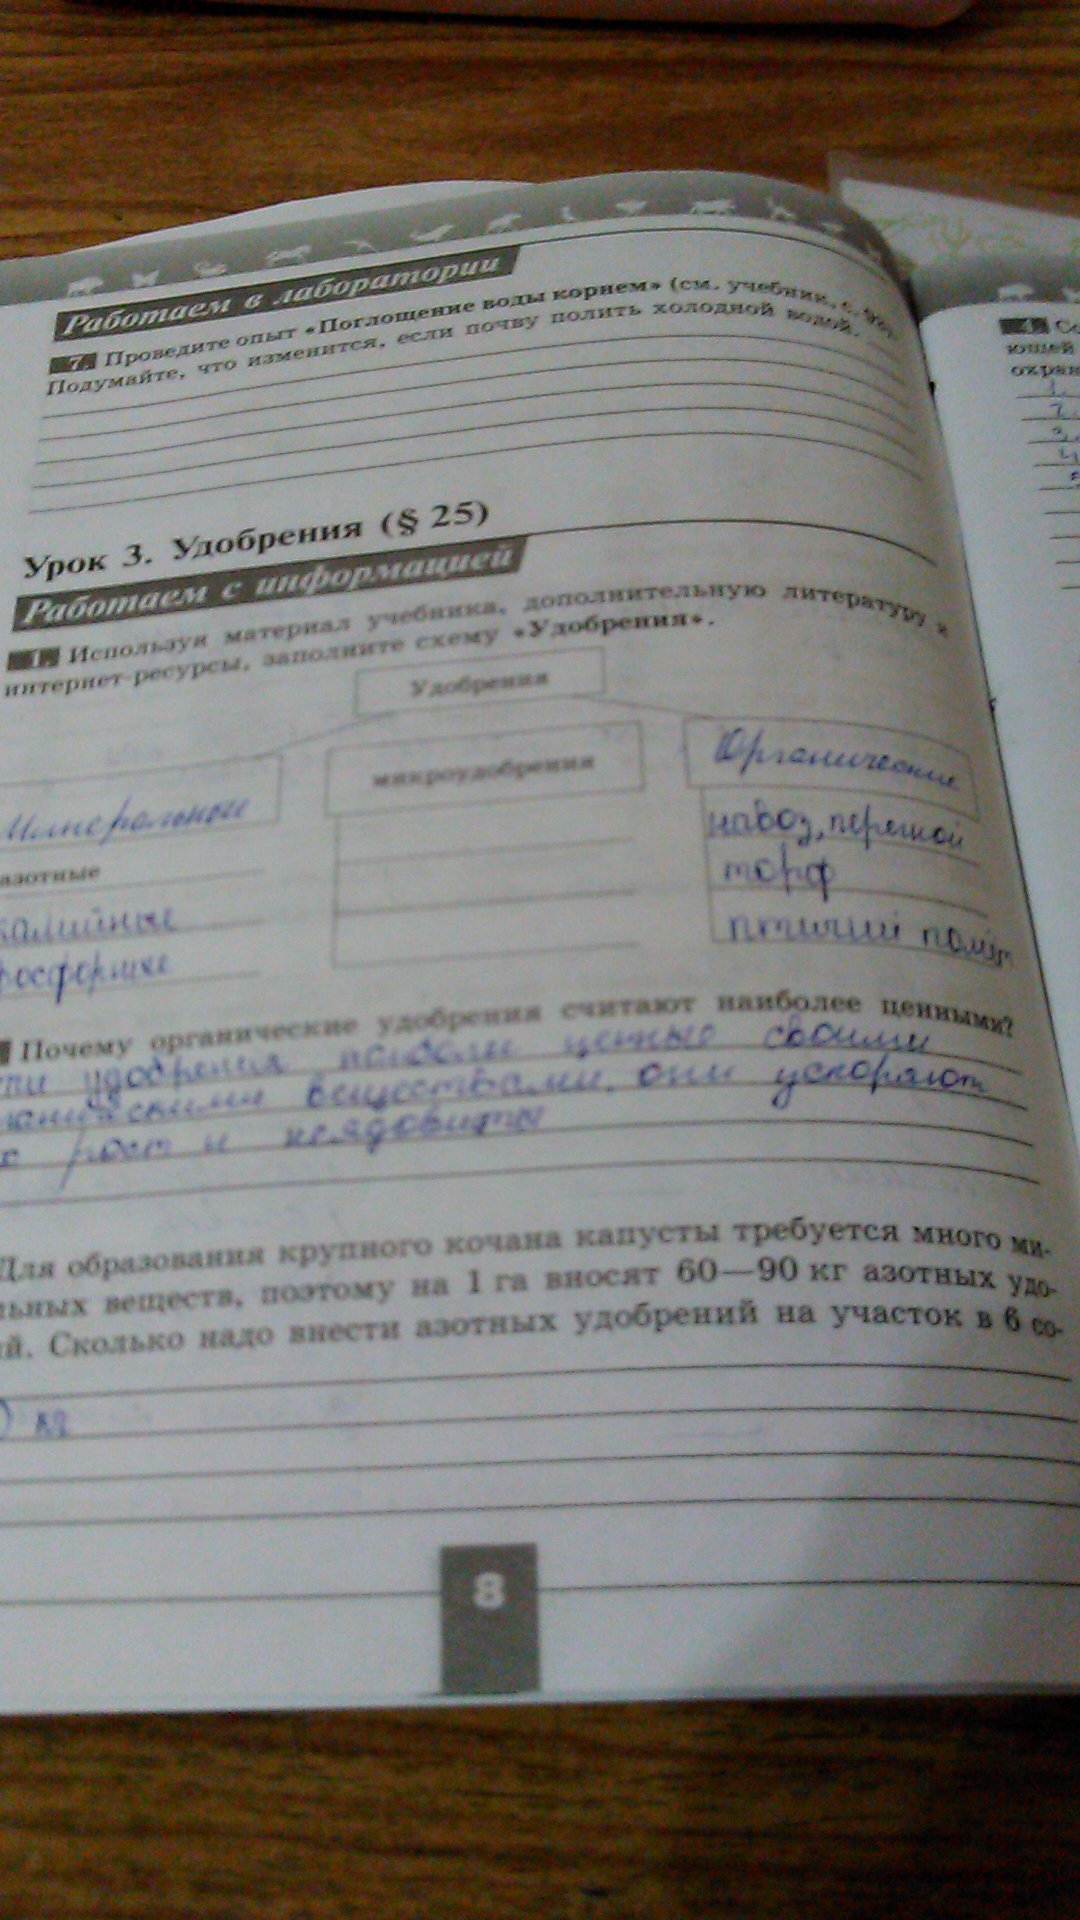 Работаем в лаборатории
7. Проведите опыт «Поглощение воды корнем» (см. учебник, с.
Подумайте, что изменится, если почву полить холодной водой.
Урок 3. Удобрения (§ 25)
Работаем с информацией
1. Используя материал учебника, дополнительную литературу и
интернет-ресурсы, заполните схему «Удобрения».
Удобрения
Минеральные
микроудобрения
Органические
азотные
калийные
фосфорные
навоз, перегной
торф
птичий помёт
Почему органические удобрения считают наиболее ценными?
удобрения наиболее ценные своими
веществами. они ускоряют
рост и неядовиты
Для образования крупного кочана капусты требуется много ми-
льных веществ, поэтому на 1 га вносят 60—90 кг азотных удо-
ий. Сколько надо внести азотных удобрений на участок в 6 со-
кг
8
4. Со
ющей
охран
1.
2.
3.
4